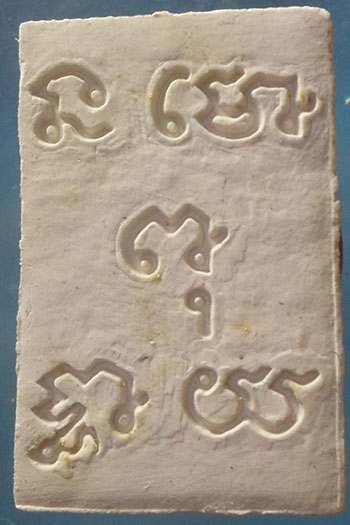 ន មោ
ពុ
ទ្ធា យ